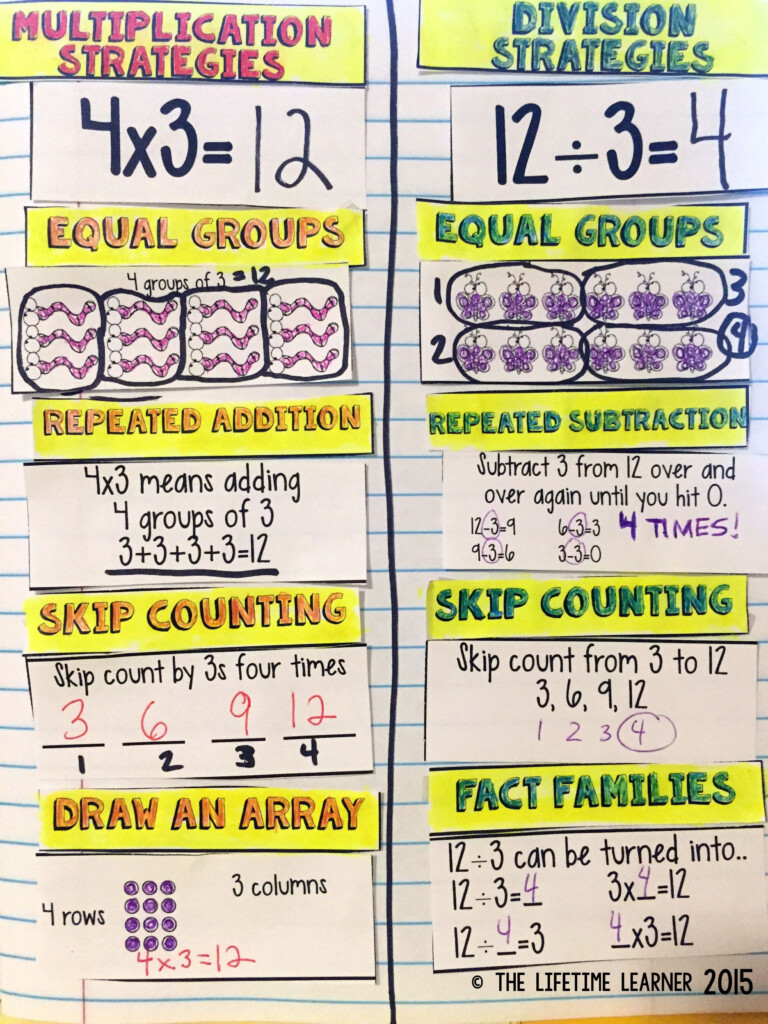 MULTIPLICATION
STRATEGIES
4x3= 12
EQUAL GROUPS
4 groups of 3 = 12
REPEATED ADDITION
4x3 means adding
4 groups of 3
3+3+3+3=12
SKIP COUNTING
Skip count by 3s four times
3 6 9 12
1 2 3 4
DRAW AN ARRAY
3 columns
4 rows
4x3=12
DIVISION
STRATEGIES
12÷3=4
EQUAL GROUPS
1 3
2 4
REPEATED SUBTRACTION
Subtract 3 from 12 over and
over again until you hit 0.
12-3=9 6-3=3 4 TIMES!
9-3=6 3-3=0
SKIP COUNTING
Skip count from 3 to 12
3, 6, 9, 12
1 2 3 4
FACT FAMILIES
12÷3 can be turned into..
12÷3=4 3x4=12
12÷4=3 4x3=12
© THE LIFETIME LEARNER 2015